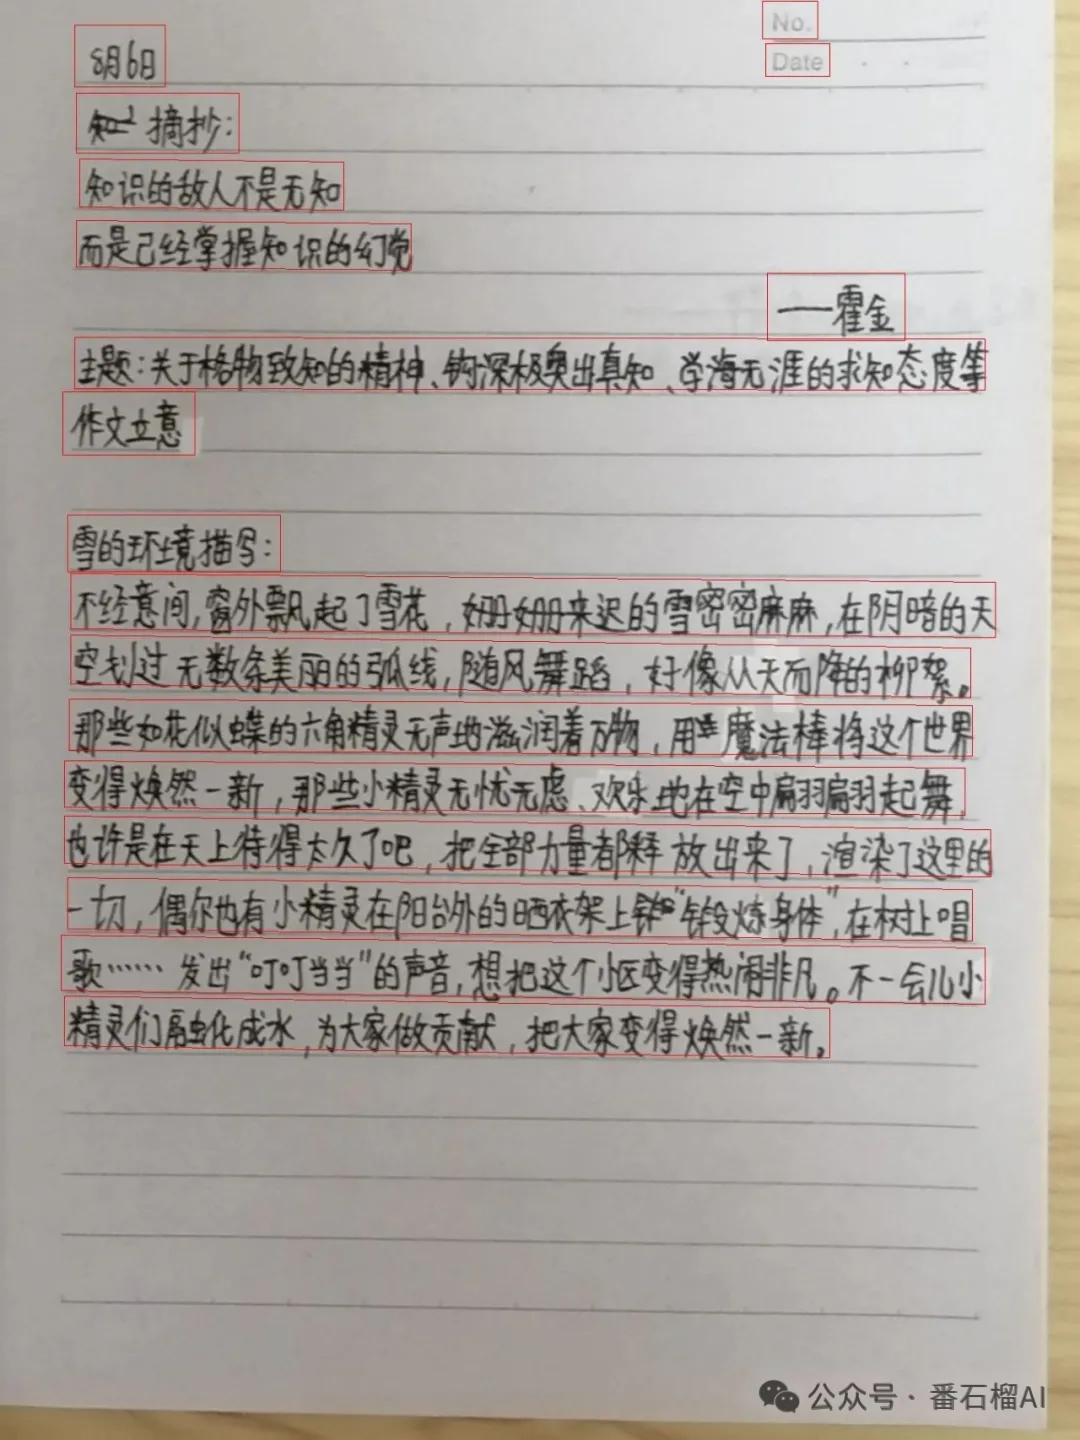 No.
Date
8月6日
摘抄:
知识的敌人不是无知
而是已经掌握知识的幻觉
——霍金
主题:关于格物致知的精神、钩深极奥出真知、学海无涯的求知态度等
作文立意
雪的环境描写:
不经意间,窗外飘起了雪花,姗姗来迟的雪密密麻麻,在阴暗的天
空划过无数条美丽的弧线,随风舞蹈,好像从天而降的柳絮。
那些如花似蝶的六角精灵无声地滋润着万物,用魔法棒将这个世界
变得焕然一新,那些小精灵无忧无虑、欢乐地在空中翩翩起舞,
也许是在天上待得太久了吧,把全部力量都释放出来了,渲染了这里的
一切,偶尔也有小精灵在阳台外的晒衣架上“锻炼身体”,在树上唱
歌……发出“叮叮当当”的声音,想把这个小区变得热闹非凡。不一会儿小
精灵们融化成水,为大家做贡献,把大家变得焕然一新。
公众号·番石榴AI